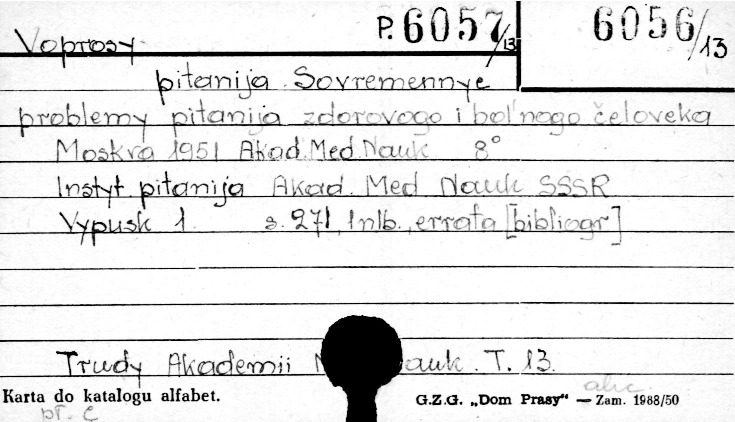 P. 6057/13 6056/13
Voprosy
pitanija. Sovremennye
problemy pitanija zdorovogo i bol'nogo čeloveka
Moskva 1951 Akad. Med. Nauk 8°
Instyt. pitanija Akad. Med Nauk SSSR
Vypusk 1. s. 271, 1 nlb., errata [bibliogr]
Trudy Akademii Nauk. T. 13.
Karta do katalogu alfabet.
G.Z.G. „Dom Prasy“ — Zam. 1988/50